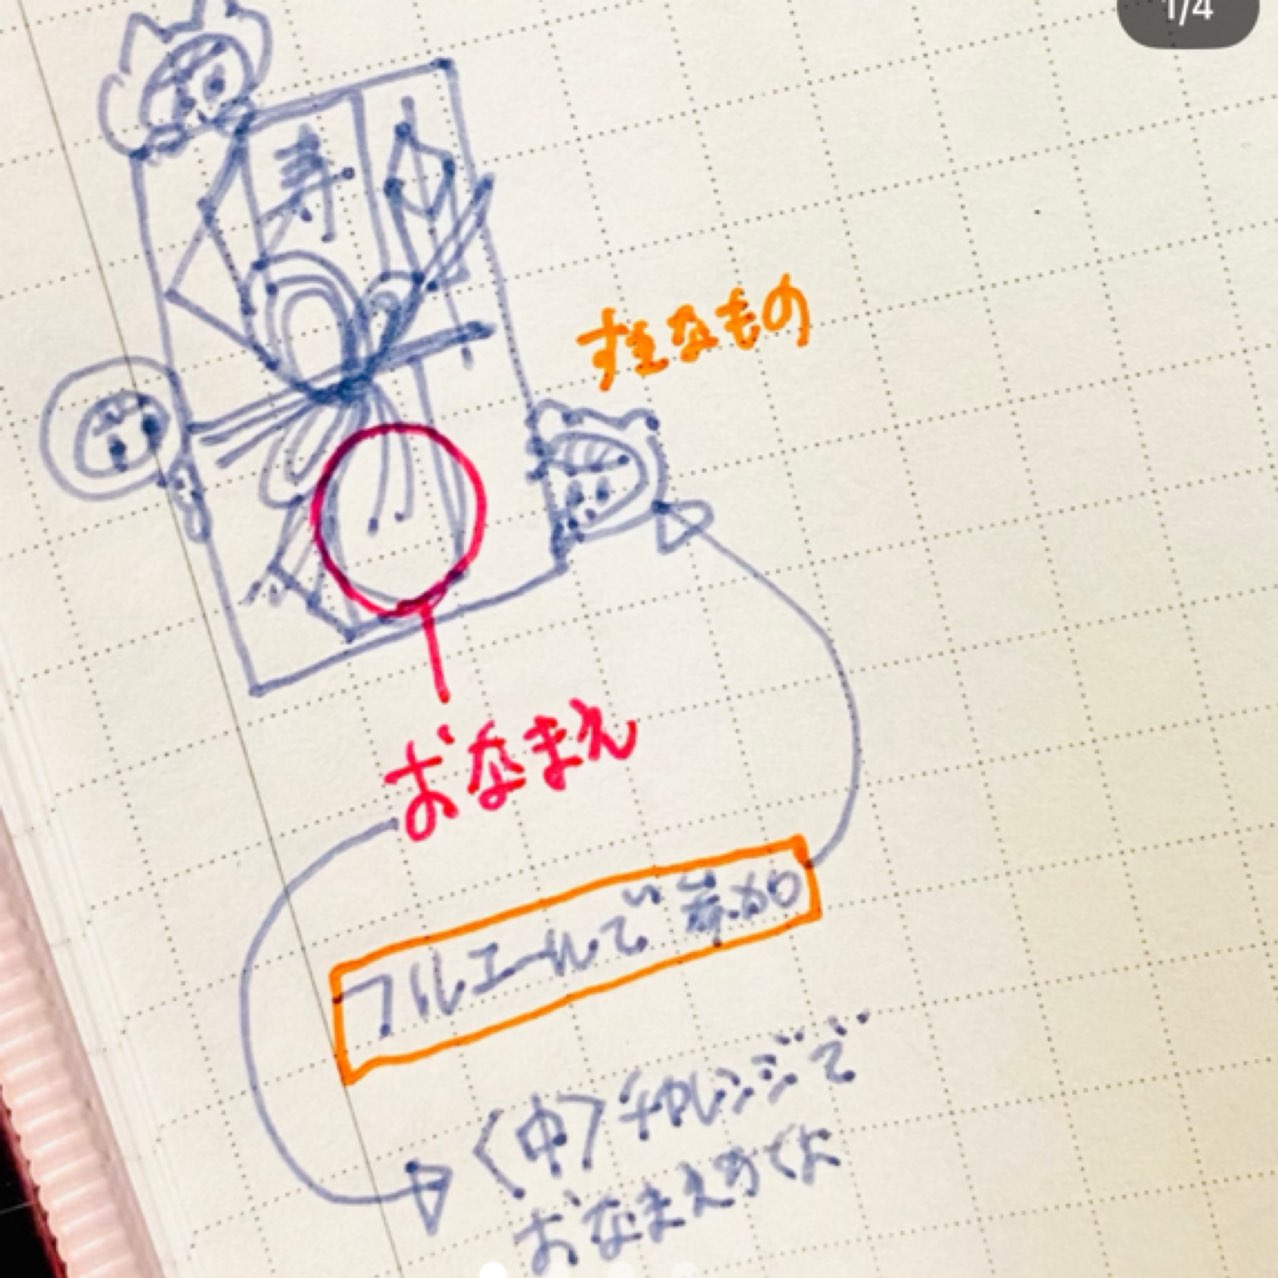 1/4
寿
すきなもの
おなまえ
フルエールで参加
〈中〉チャレンジで
おなまえめくり